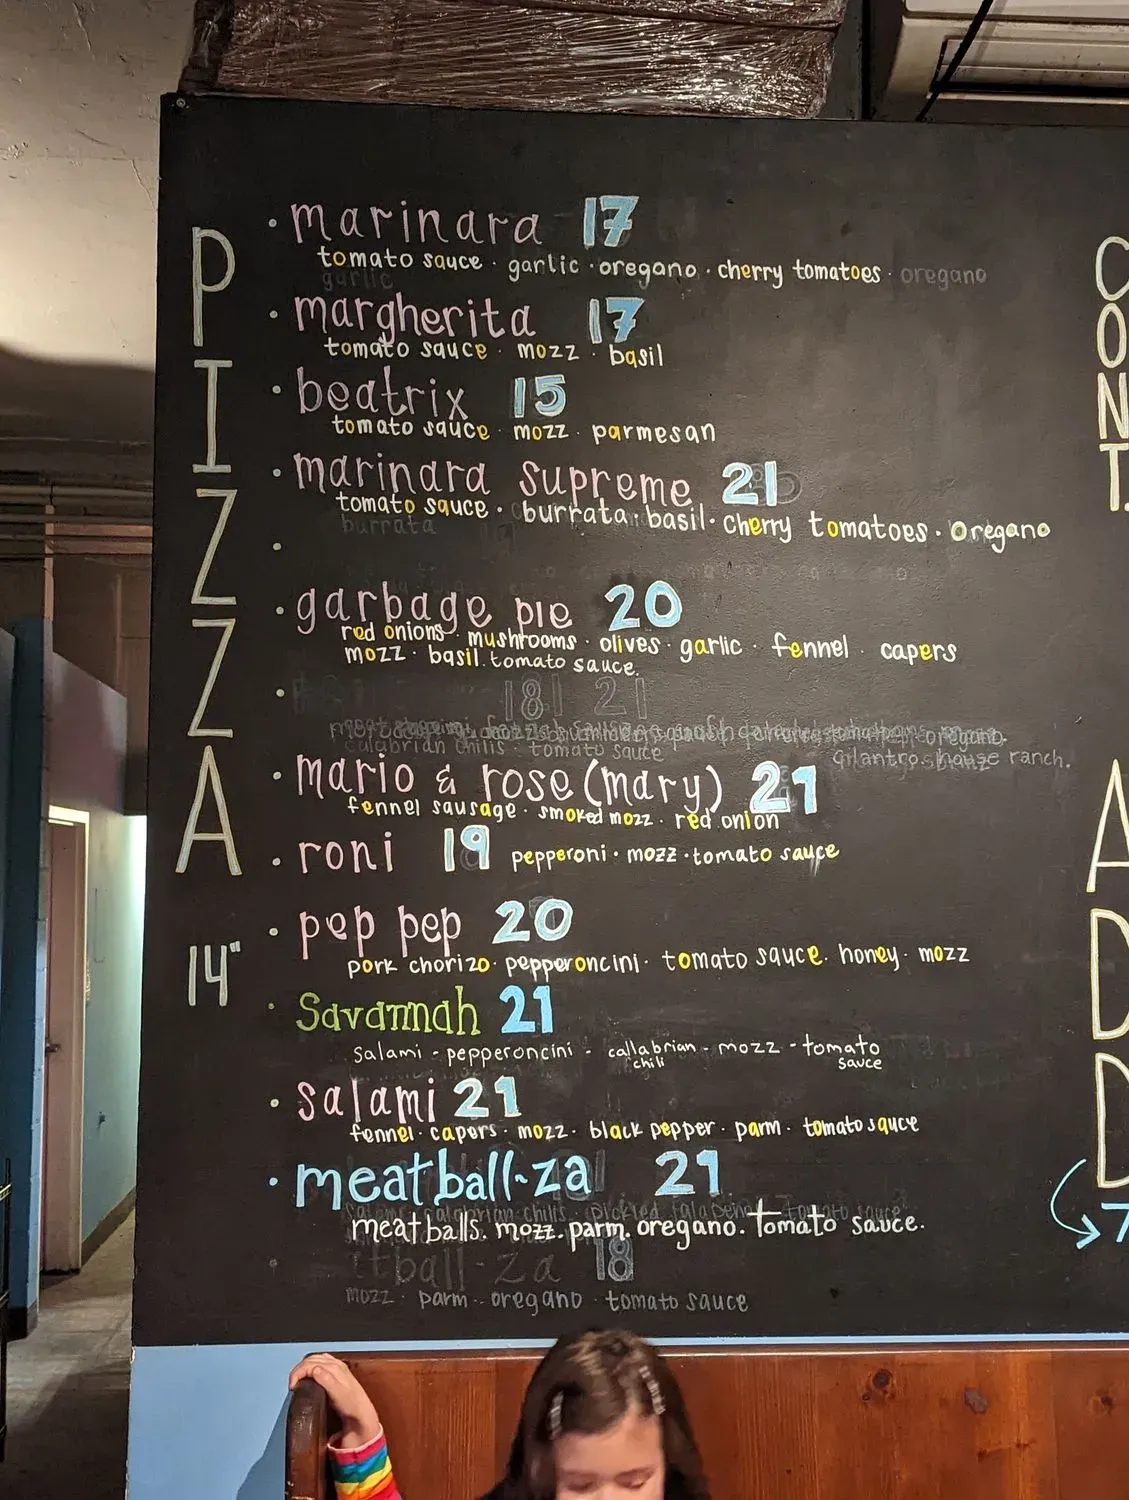 PIZZA
14"
· marinara 17
tomato sauce · garlic · oregano · cherry tomatoes · oregano
garlic
· margherita 17
tomato sauce · mozz · basil
· beatrix 15
tomato sauce · mozz · parmesan
· marinara supreme 21
tomato sauce · burrata · basil · cherry tomatoes · oregano
burrata
· garbage pie 20
red onions · mushrooms · olives · garlic · fennel · capers
mozz · basil. tomato sauce.
18 21
oregano.
calabrian chilis · tomato sauce
cilantro. house ranch.
· mario & rose (mary) 21
fennel sausage · smoked mozz · red onion
· roni 19 pepperoni · mozz · tomato sauce
· pep pep 20
pork chorizo · pepperoncini · tomato sauce. honey · mozz
· Savannah 21
salami - pepperoncini - callabrian chili - mozz - tomato sauce
· salami 21
fennel · capers · mozz · black pepper · parm · tomato sauce
· meatball-za 21
calabrian chilis. pickled jalapeño tomato sauce
meatballs. mozz. parm. oregano. tomato sauce.
tball-za 18
mozz · parm · oregano · tomato sauce
CONT.
ADD
7